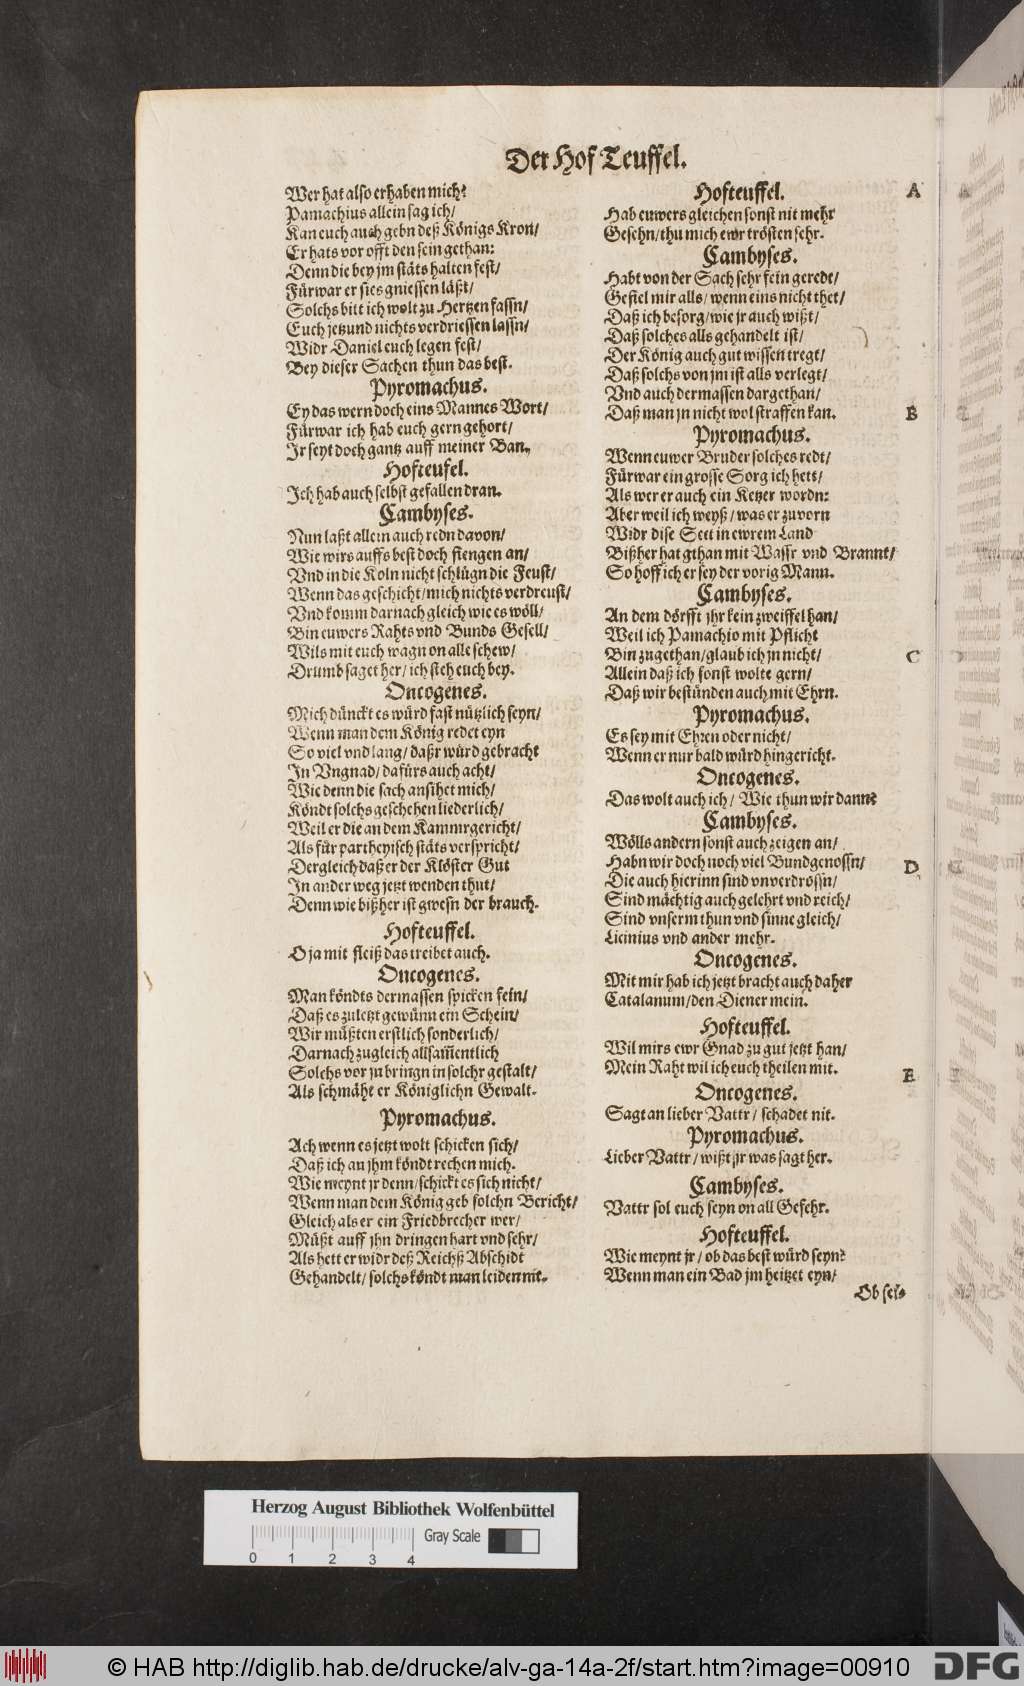 Der Hof Teuffel.
Wer hat also erhaben mich?
Pamachius allein sag ich/
Kan euch auch gebn deß Königs Kron/
Er hats vor offt den sein gethan:
Denn die bey jm stäts halten fest/
Fürwar er sies gniessen läßt/
Solchs bitt ich wolt zu Hertzen fassn/
Euch jetzund nichts verdriessen lassn/
Widr Daniel euch legen fest/
Bey dieser Sachen thun das best.
Pyromachus.
Ey das wern doch eins Mannes Wort/
Fürwar ich hab euch gern gehort/
Jr seyt doch gantz auff meiner Ban.
Hofteufel.
Ich hab auch selbst gefallen dran.
Cambyses.
Nun laßt allein auch redn davon/
Wie wirs auffs best doch fiengen an/
Vnd in die Koln nicht schlügn die Feust/
Wenn das geschicht/mich nichts verdreust/
Vnd komm darnach gleich wie es wöll/
Bin euwers Rahts vnd Bunds Gesell/
Wils mit euch wagn on alle schew/
Drumb saget her/ich steh euch bey.
Oncogenes.
Mich dünckt es würd fast nützlich seyn/
Wenn man dem König redet eyn
So viel vnd lang/daßr würd gebracht
In Vngnad/dafürs auch acht/
Wie denn die sach ansihet mich/
Köndt solchs geschehen liederlich/
Weil er die an dem Kammrgericht/
Als für partheyisch stäts verspricht/
Dergleich daß er der Klöster Gut
In ander weg jetzt wenden thut/
Denn wie bißher ist gwesn der brauch.
Hofteuffel.
O ja mit fleiß das treibet auch.
Oncogenes.
Man köndts dermassen spicken fein/
Daß es zuletzt gewünn ein Schein/
Wir müßten erstlich sonderlich/
Darnach zugleich allsam̃entlich
Solchs vor jn bringn in solchr gestalt/
Als schmäht er Königlichn Gewalt.
Pyromachus.
Ach wenn es jetzt wolt schicken sich/
Daß ich an jhm köndt rechen mich.
Wie meynt jr denn/schickt es sich nicht/
Wenn man dem König geb solchn Bericht/
Gleich als er ein Friedbrecher wer/
Müßt auff jhn dringen hart vnd sehr/
Als hett er widr deß Reichß Abschidt
Gehandelt/solchs köndt man leiden nit.
Hofteuffel. A
Hab euwers gleichen sonst nit mehr
Gesehn/thu mich ewr trösten sehr.
Cambyses.
Habt von der Sach sehr fein geredt/
Gefiel mir alls/wenn eins nicht thet/
Daß ich besorg/wie jr auch wißt/
Daß solches alls gehandelt ist/
Der König auch gut wissen tregt/
Daß solchs von jm ist alls verlegt/
Vnd auch dermassen dargethan/
Daß man jn nicht wol straffen kan. B
Pyromachus.
Wenn euwer Bruder solches redt/
Fürwar ein grosse Sorg ich hett/
Als wer er auch ein Ketzer wordn:
Aber weil ich weyß/was er zuvorn
Widr dise Sect in ewrem Land
Bißher hat gthan mit Wassr vnd Brannt/
So hoff ich er sey der vorig Mann.
Cambyses.
An dem dörfft jhr kein zweiffel han/
Weil ich Pamachio mit Pflicht
Bin zugethan/glaub ich jn nicht/ C
Allein daß ich sonst wolte gern/
Daß wir bestünden auch mit Ehrn.
Pyromachus.
Es sey mit Ehren oder nicht/
Wenn er nur bald würd hingericht.
Oncogenes.
Das wolt auch ich/Wie thun wir dann?
Cambyses.
Wölls andern sonst auch zeigen an/
Habn wir doch noch viel Bundgenossn/ D
Die auch hierinn sind vnverdrossn/
Sind mächtig auch gelehrt vnd reich/
Sind vnserm thun vnd sinne gleich/
Licinius vnd ander mehr.
Oncogenes.
Mit mir hab ich jetzt bracht auch daher
Catalanum/den Diener mein.
Hofteuffel.
Wil mirs ewr Gnad zu gut jetzt han/
Mein Raht wil ich euch theilen mit. E
Oncogenes.
Sagt an lieber Vattr/schadet nit.
Pyromachus.
Lieber Vattr/wißt jr was sagt her.
Cambyses.
Vattr sol euch seyn on all Gefehr.
Hofteuffel.
Wie meynt jr/ob das best würd seyn?
Wenn man ein Bad jm heitzet eyn/
Ob sei-
Herzog August Bibliothek Wolfenbüttel
0 1 2 3 4 Gray Scale
© HAB http://diglib.hab.de/drucke/alv-ga-14a-2f/start.htm?image=00910
DFG